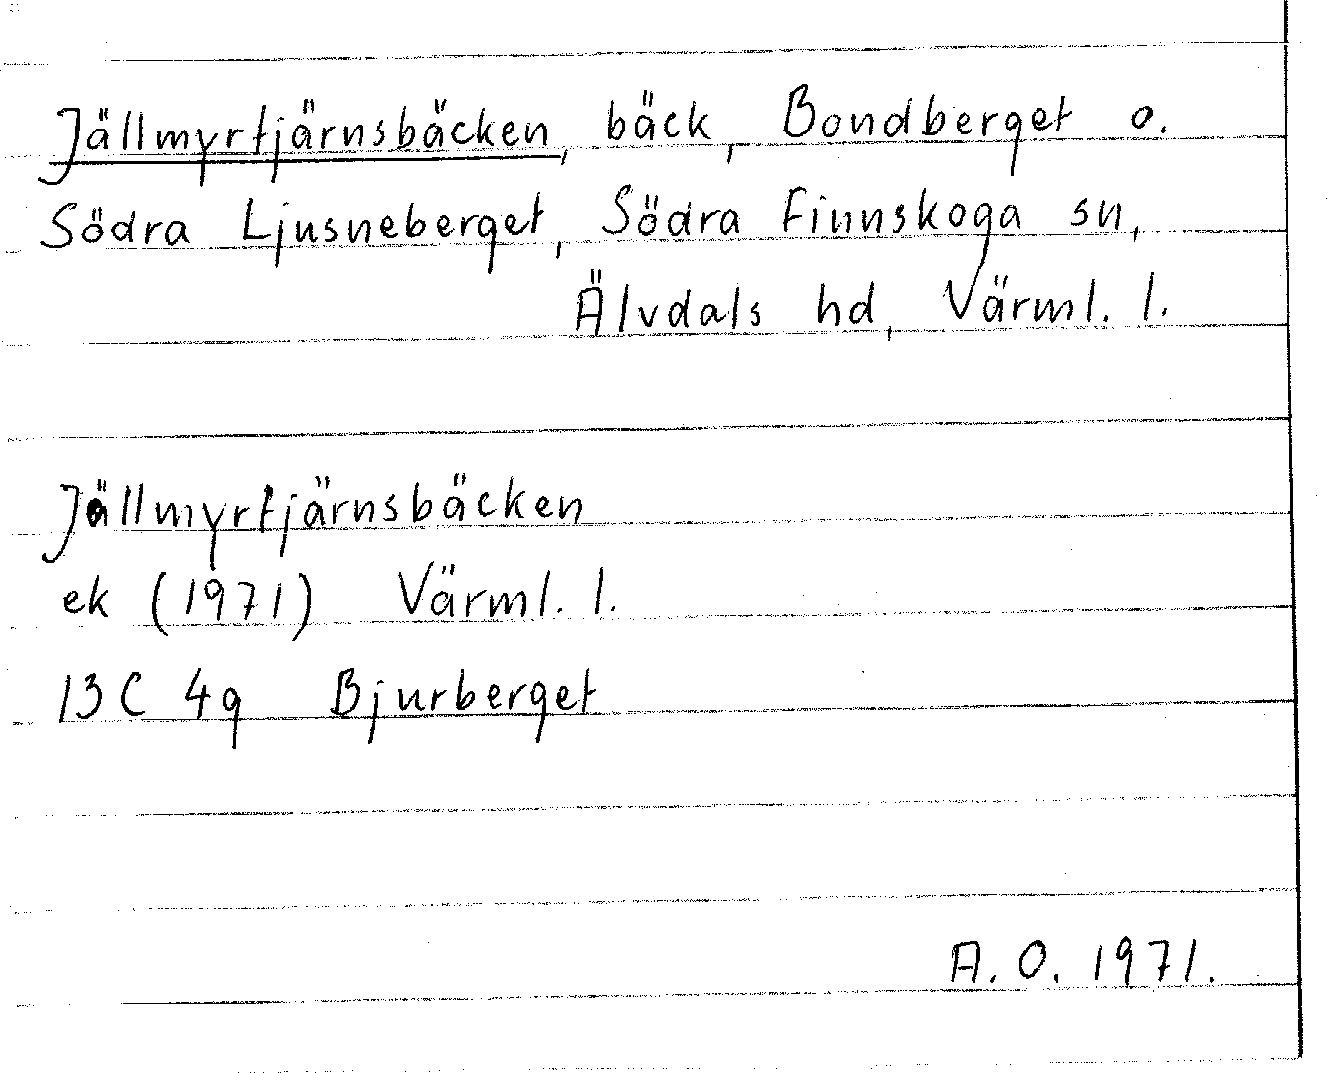 Jällmyrtjärnsbäcken, bäck, Bondberget o.
Södra Ljusneberget, Södra Finnskoga sn,
Älvdals hd, Värml. l.
Jällmyrtjärnsbäcken
ek (1971) Värml. l.
13C 4g Bjurberget
A. O. 1971.